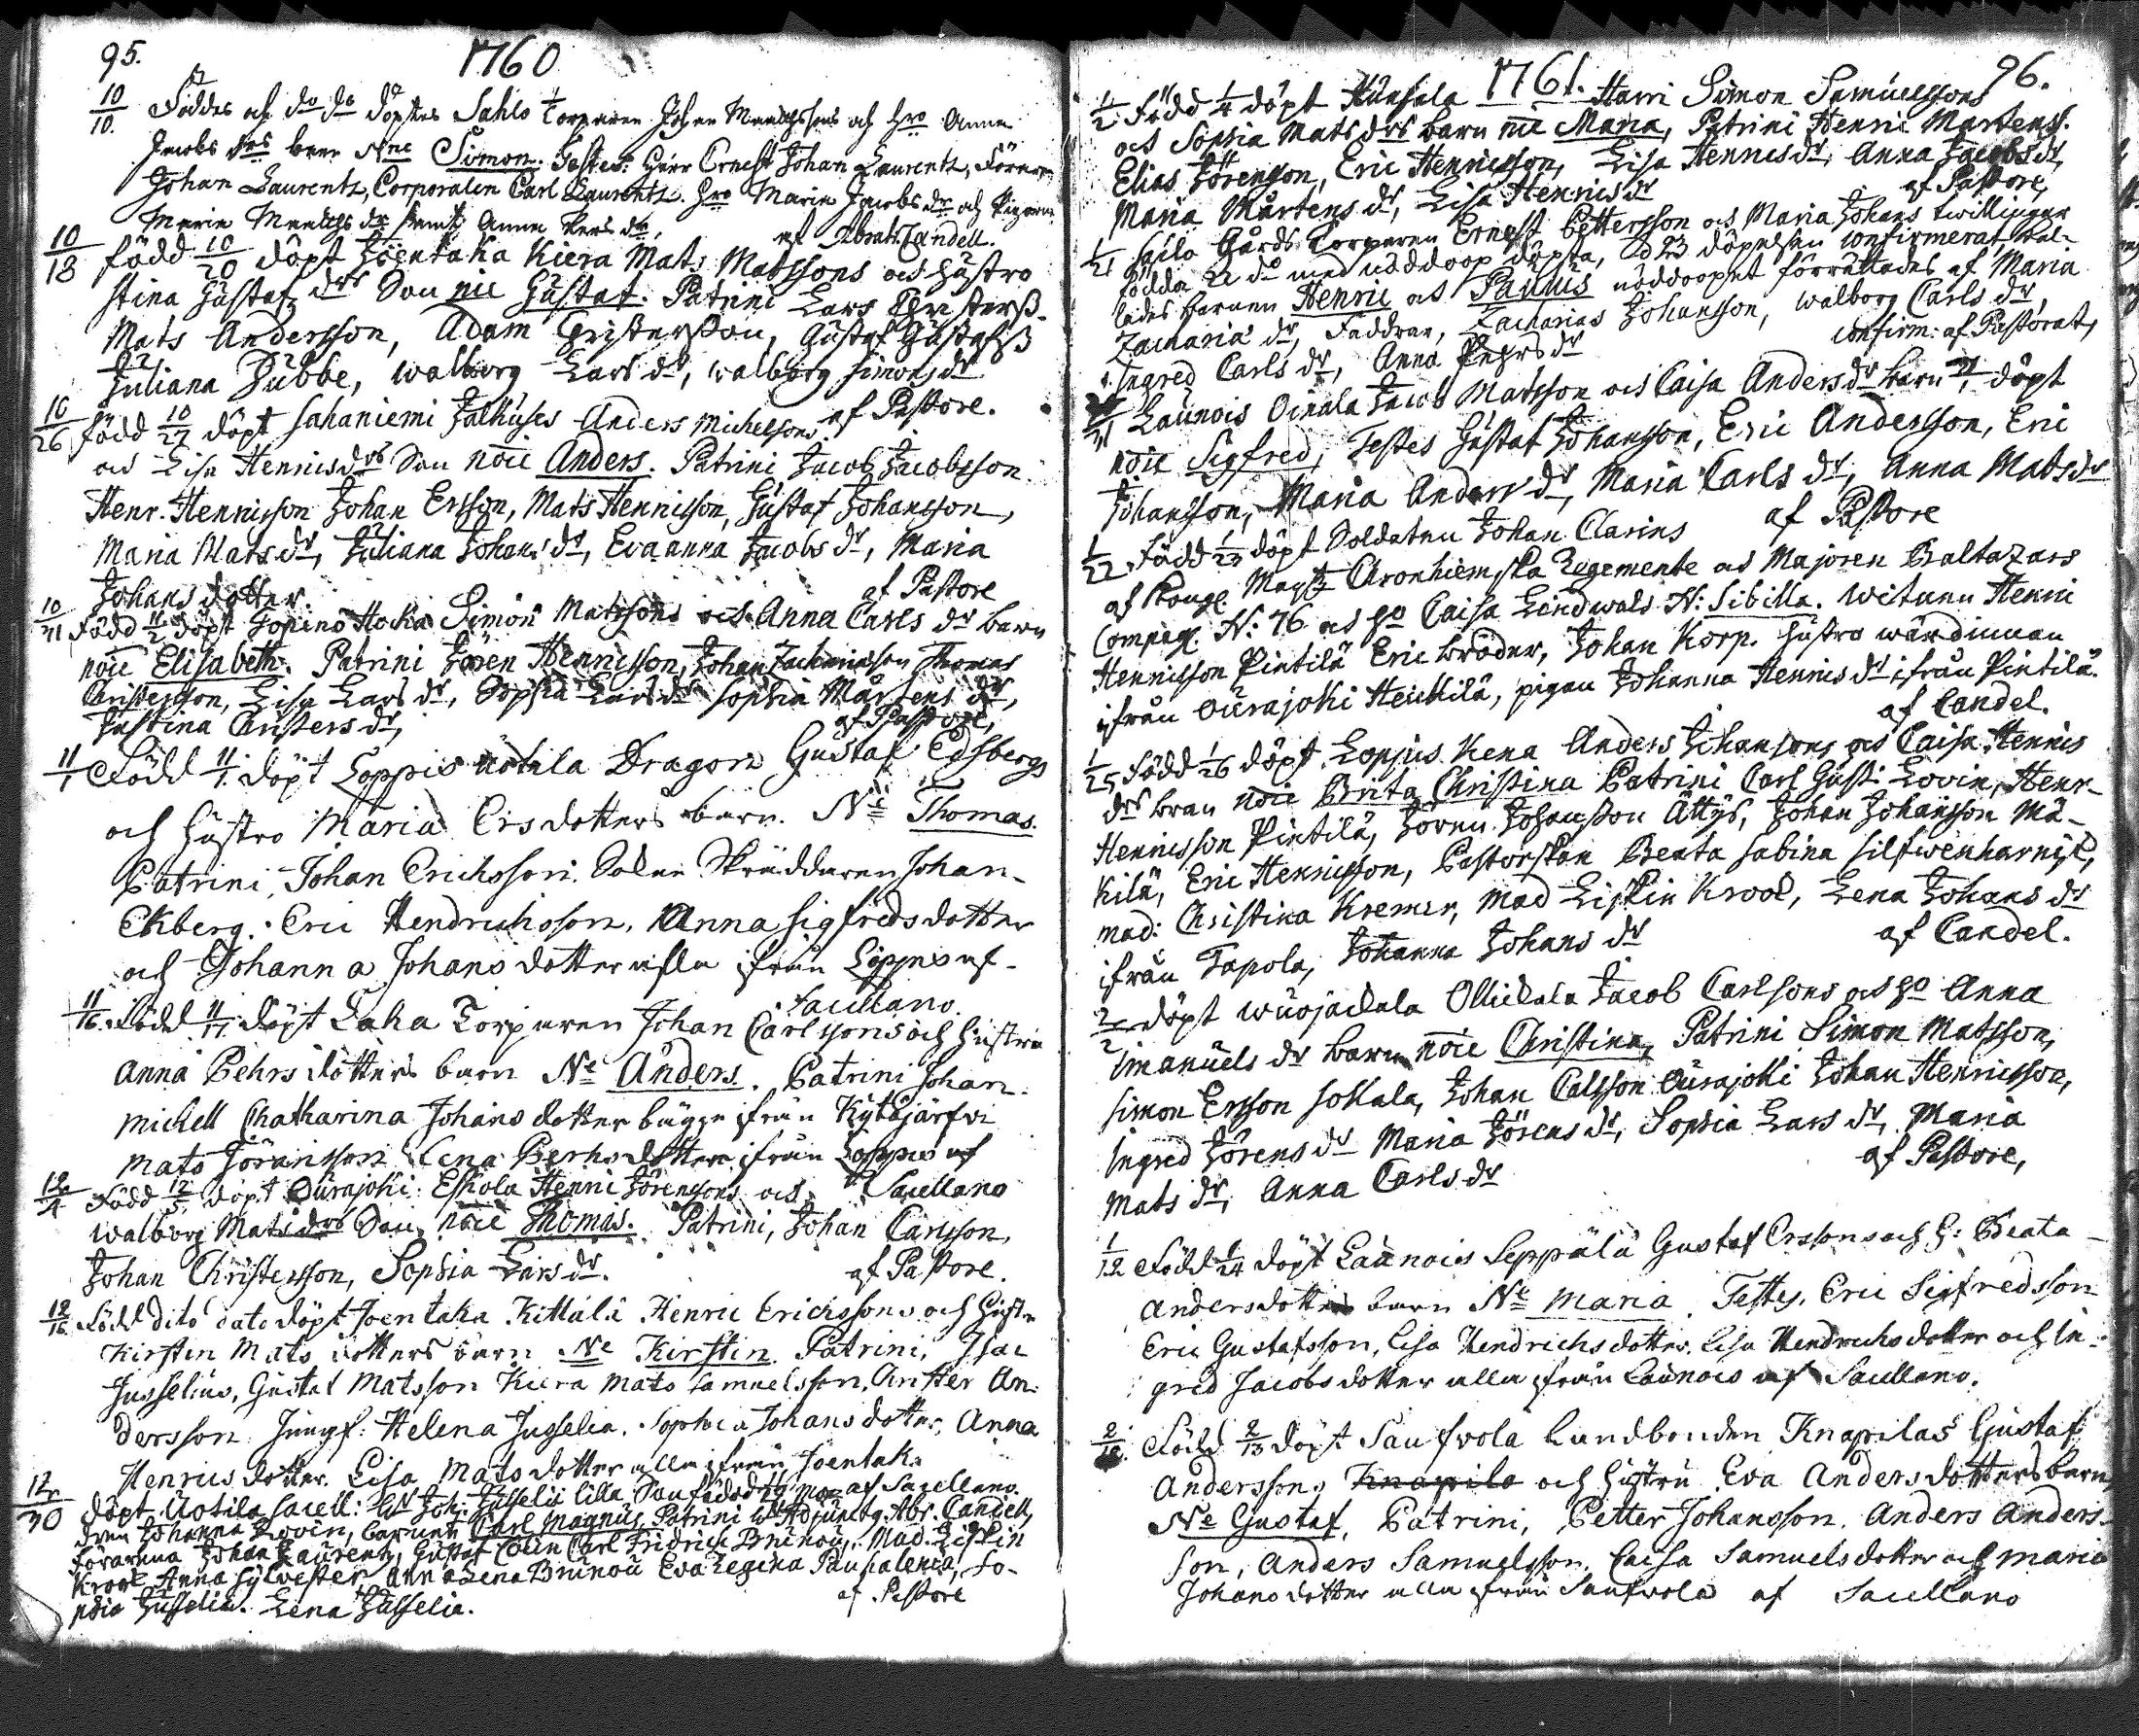 95.
1760
10/10. Föddes och do do döptes Sahlo Torparen Johan Mendhssons och Hro Anna
Jacobs drs barn Nne Simon. Testes: Herr Ernest Johan Laurentz, Förar
Johan Laurentz, Corporalen Carl Laurentz. Hro Maria Jacobs dr och Pigorna
Maria dr samt Anna Pers dr, af Abrah. Candell.
10/18 född 10/20 döpt Joentaka Kiera Mats Matssons och Hustro
Stina Gustafz drs Son nie Gustaf. Patrini Lars Christerss.
Mats Andersson, Adam Christersson, Gustaf Gustafss
Juliana Dubbe, Walborg Lars dr, Walborg Simons dr
10/26 född 10/27 döpt Sahaniemi Jälhuses Anders Michelsons af Pastore.
och Lisa Henricsdrs Son noie Anders. Patrini Jacob Jacobsson
Henr. Henricsson Johan Ersson, Mats Henricsson, Gustaf Johansson,
Maria Mats dr, Juliana Johans dr, Eva Anna Jacobs dr, Maria
Johans dotter. af Pastore
10/31 född 11/2 döpt Topeno Hoka Simon Matssons och Anna Carls dr barn
noie Elisabeth. Patrini Jören Henricsson, Johan Zachariasson Thomas
Christersson, Lisa Lars dr, Sophia Lars dr Sophia Mårtens dr,
Justina Christers dr, af Pastore,
11/1 Född 11/1. döpt Loppis Uotila Dragon Gustaf Edsbergs
och Hustro Maria Ersdotters barn. Ne Thomas.
Patrini, Johan Erichsson. Solen Skräddaren Johan
Ekberg. Eric Hendrichsson. Anna Sigfreds dotter
och Johanna Johans dotter alla ifrån Loppis af
Sacellano.
11/16. Född 11/17. döpt Laka Torparen Johan Carlssons och Hustru
Anna Pehrs dotters barn Ne Anders. Patrini Johan
Michell Chatharina Johans dotter bägge ifrån Kytöjärfvi
Mats Göransson Lena Perhs dotter ifrån Loppis af
Sacellano
12/4 Född 12/5 döpt Ourajoki Eskola Henric Jörenssons och
Walborg Mats drs Son, noie Thomas. Patrini, Johan Carlsson,
Johan Christersson, Sophia Lars dr. af Pastore.
12/16 Född dito dato döpt Joentaka Kittälä Henric Ericssons och Hustr
Kirstin Mats dotters barn Ne Kirstin. Patrini, Isac
Jusselius, Gustaf Matsson Kiera Mats Samuelsson, Christer An-
dersson Jungf: Helena Jusselia. Sophia Johans dotter, Anna
Henrics dotter. Lisa Mats dotter alla ifrån Joentaka
af Sacellano.
12/30 döpt Uotila Sacell: Joh: Jusselii lilla Son född 29
Johanna Lovin, barnet Carl Magnus, Patrini Adjunctg. Abr. Candell,
Förarena Johan Laurentz, Gustaf Lovin Carl Fridrich Brunou, Mad. Liskin
Krook Anna Sylvester Anna Lena Brunou Eva Regina Pausalenia, So-
phia Jusselia. Lena Jusselia. af Pastore
1761.
96.
1/2 Född 1/4 döpt Hunsala Harri Simon Samuelssons
och Sophia Mats drs barn nie Maria, Patrini Henric Mårtenss.
Elias Jörensson, Eric Henricsson, Lisa Henrics dr, Anna Jacobs dr,
Maria Mårtens dr, Lisa Henrics dr af Pastore,
1/21 Sailo Gårds Torparen Ernest Pettersson och Maria Johans twillingar
födda 22 do med nöddoop döpta, d 23 döpelsen confirmerat, kal-
lades barnen Henric och Paulus nöddoopet förrättades af Maria
Zacharia dr, Faddrar, Zacharias Johansson, Walborg Carls dr,
Ingred Carls dr, Anna Pehrs dr confirm: af Pastorat,
1/31 Launois Oinala Jacob Matsson och Caisa Anders dr barn döpt
noie Sigfred, Testes Gustaf Johansson, Eric Andersson, Eric
Johansson, Maria Anders dr, Maria Carls dr, Anna Mats dr
af Pastore
1/22 Född 1/23 döpt Soldaten Johan Clarins
af Kongl. Mayt Cronhiemska Regemente och Majoren Baltazars
Compagl N: 76 och Ho Caisa Lindwals N: Sibilla. Witnen Henric
Henricsson Pintilä Eric broder, Johan Korp. Hustro wärdinnan
ifrån Ourajoki Heikkilä, pigan Johanna Henrics dr ifrån Pintilä.
af Candel.
1/25 Född 1/26 döpt Loppis Kena Anders Johanssons och Caisa Henrics
drs bran noie Brita Christina Patrini Carl Gust: Lovin, Henr-
Henricsson Pintilä, Jören Johansson Ättys, Johan Johansson Mä-
kilä, Eric Henricsson, Pastorskan Beata Sabina Silfwenharnisk,
mad: Christina Kremer, Mad Liskin Krook, Lena Johans dr
ifrån Tapola, Johanna Johans dr af Candel.
2/2 döpt Wuojackala Ollickala Jacob Carlssons och Ho Anna
Imanuels dr barn noie Christina, Patrini Simon Matsson,
Simon Ersson Sokala, Johan Calsson Ourajoki Johan Henricsson,
Ingred Jörens dr Maria Jörens dr, Sophia Lars dr, Maria
Mats dr, Anna Carls dr af Pastore,
1/12 Född 1/24 döpt Launois Seppälä Gustaf Erssons och H: Beata
Andersdotters barn Ne Maria. Testes, Eric Sigfredsson
Eric Gustafsson, Lisa Hendrichs dotter, Lisa Hendrichs dotter och In-
gred Jacobs dotter alla ifrån Launois af Sacellano.
2/12. Född 2/13 döpt Saufvola Landbonden Knapilas Gustaf
Anderssons Knapila och Hustru Eva Anders dotters barn
Ne Gustaf, Patrini, Petter Johansson. Anders Anders-
son, Anders Samuelsson, Caisa Samuelsdotter och Maria
Johans dotter alla ifrån Saufvola af Sacellano